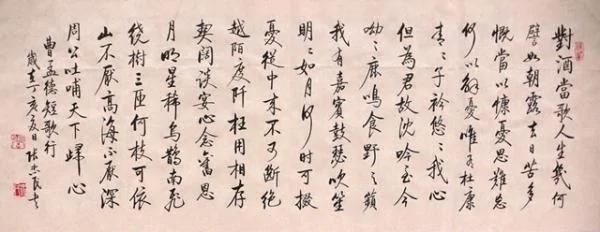 對酒當歌人生幾何
譬如朝露去日苦多
慨當以慷憂思難忘
何以解憂唯有杜康
青々子衿悠々我心
但為君故沈吟至今
呦々鹿鳴食野之蘋
我有嘉賓鼓瑟吹笙
明々如月何時可掇
憂從中來不可斷絕
越陌度阡枉用相存
契闊談宴心念舊恩
月明星稀烏鵲南飛
繞樹三匝何枝可依
山不厭高海不厭深
周公吐哺天下歸心
曹孟德短歌行
丁亥夏日